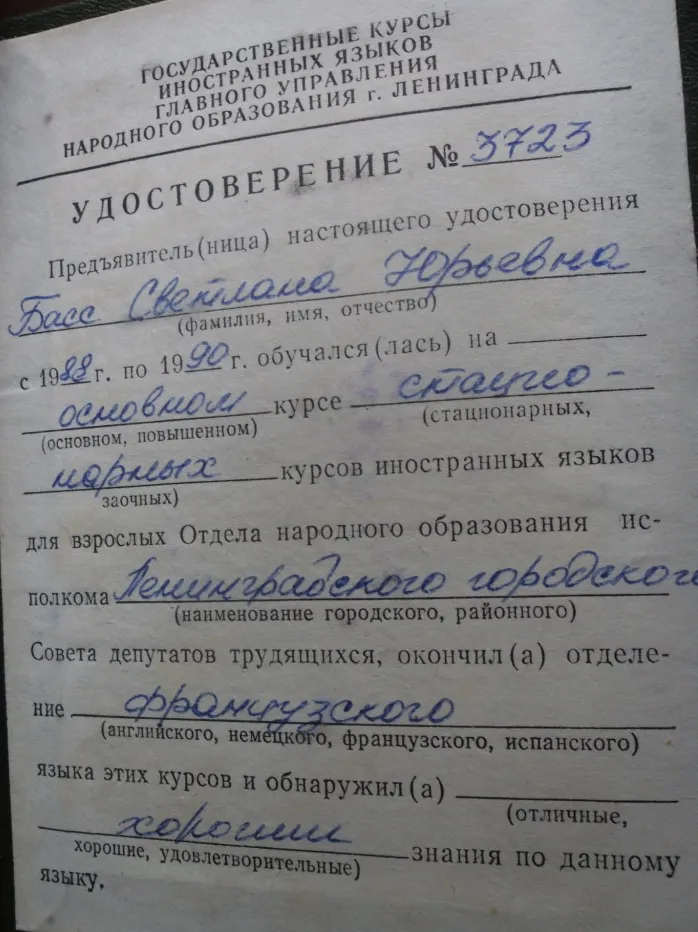 ГОСУДАРСТВЕННЫЕ КУРСЫ
ИНОСТРАННЫХ ЯЗЫКОВ
ГЛАВНОГО УПРАВЛЕНИЯ
НАРОДНОГО ОБРАЗОВАНИЯ г. ЛЕНИНГРАДА
УДОСТОВЕРЕНИЕ № 3723
Предъявитель(ница) настоящего удостоверения
Басс Светлана Юрьевна
(фамилия, имя, отчество)
с 1988 г. по 1990 г. обучался(лась) на
основном курсе стацио-
(основном, повышенном) (стационарных,
нарных курсов иностранных языков
заочных)
для взрослых Отдела народного образования ис-
полкома Ленинградского городского
(наименование городского, районного)
Совета депутатов трудящихся, окончил(а) отделе-
ние французского
(английского, немецкого, французского, испанского)
языка этих курсов и обнаружил(а)
(отличные,
хорошие знания по данному
хорошие, удовлетворительные)
языку.